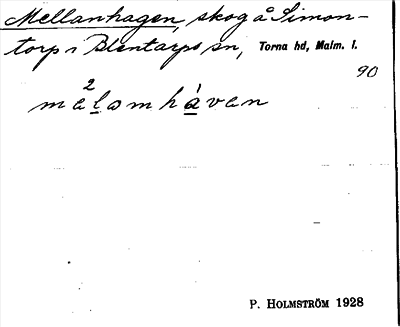 Mellanhagen, skog å Simon-
torp i Blentarps sn, Torna hd, Malm. l.
90
mäl²omhávan
P. HOLMSTRÖM 1928